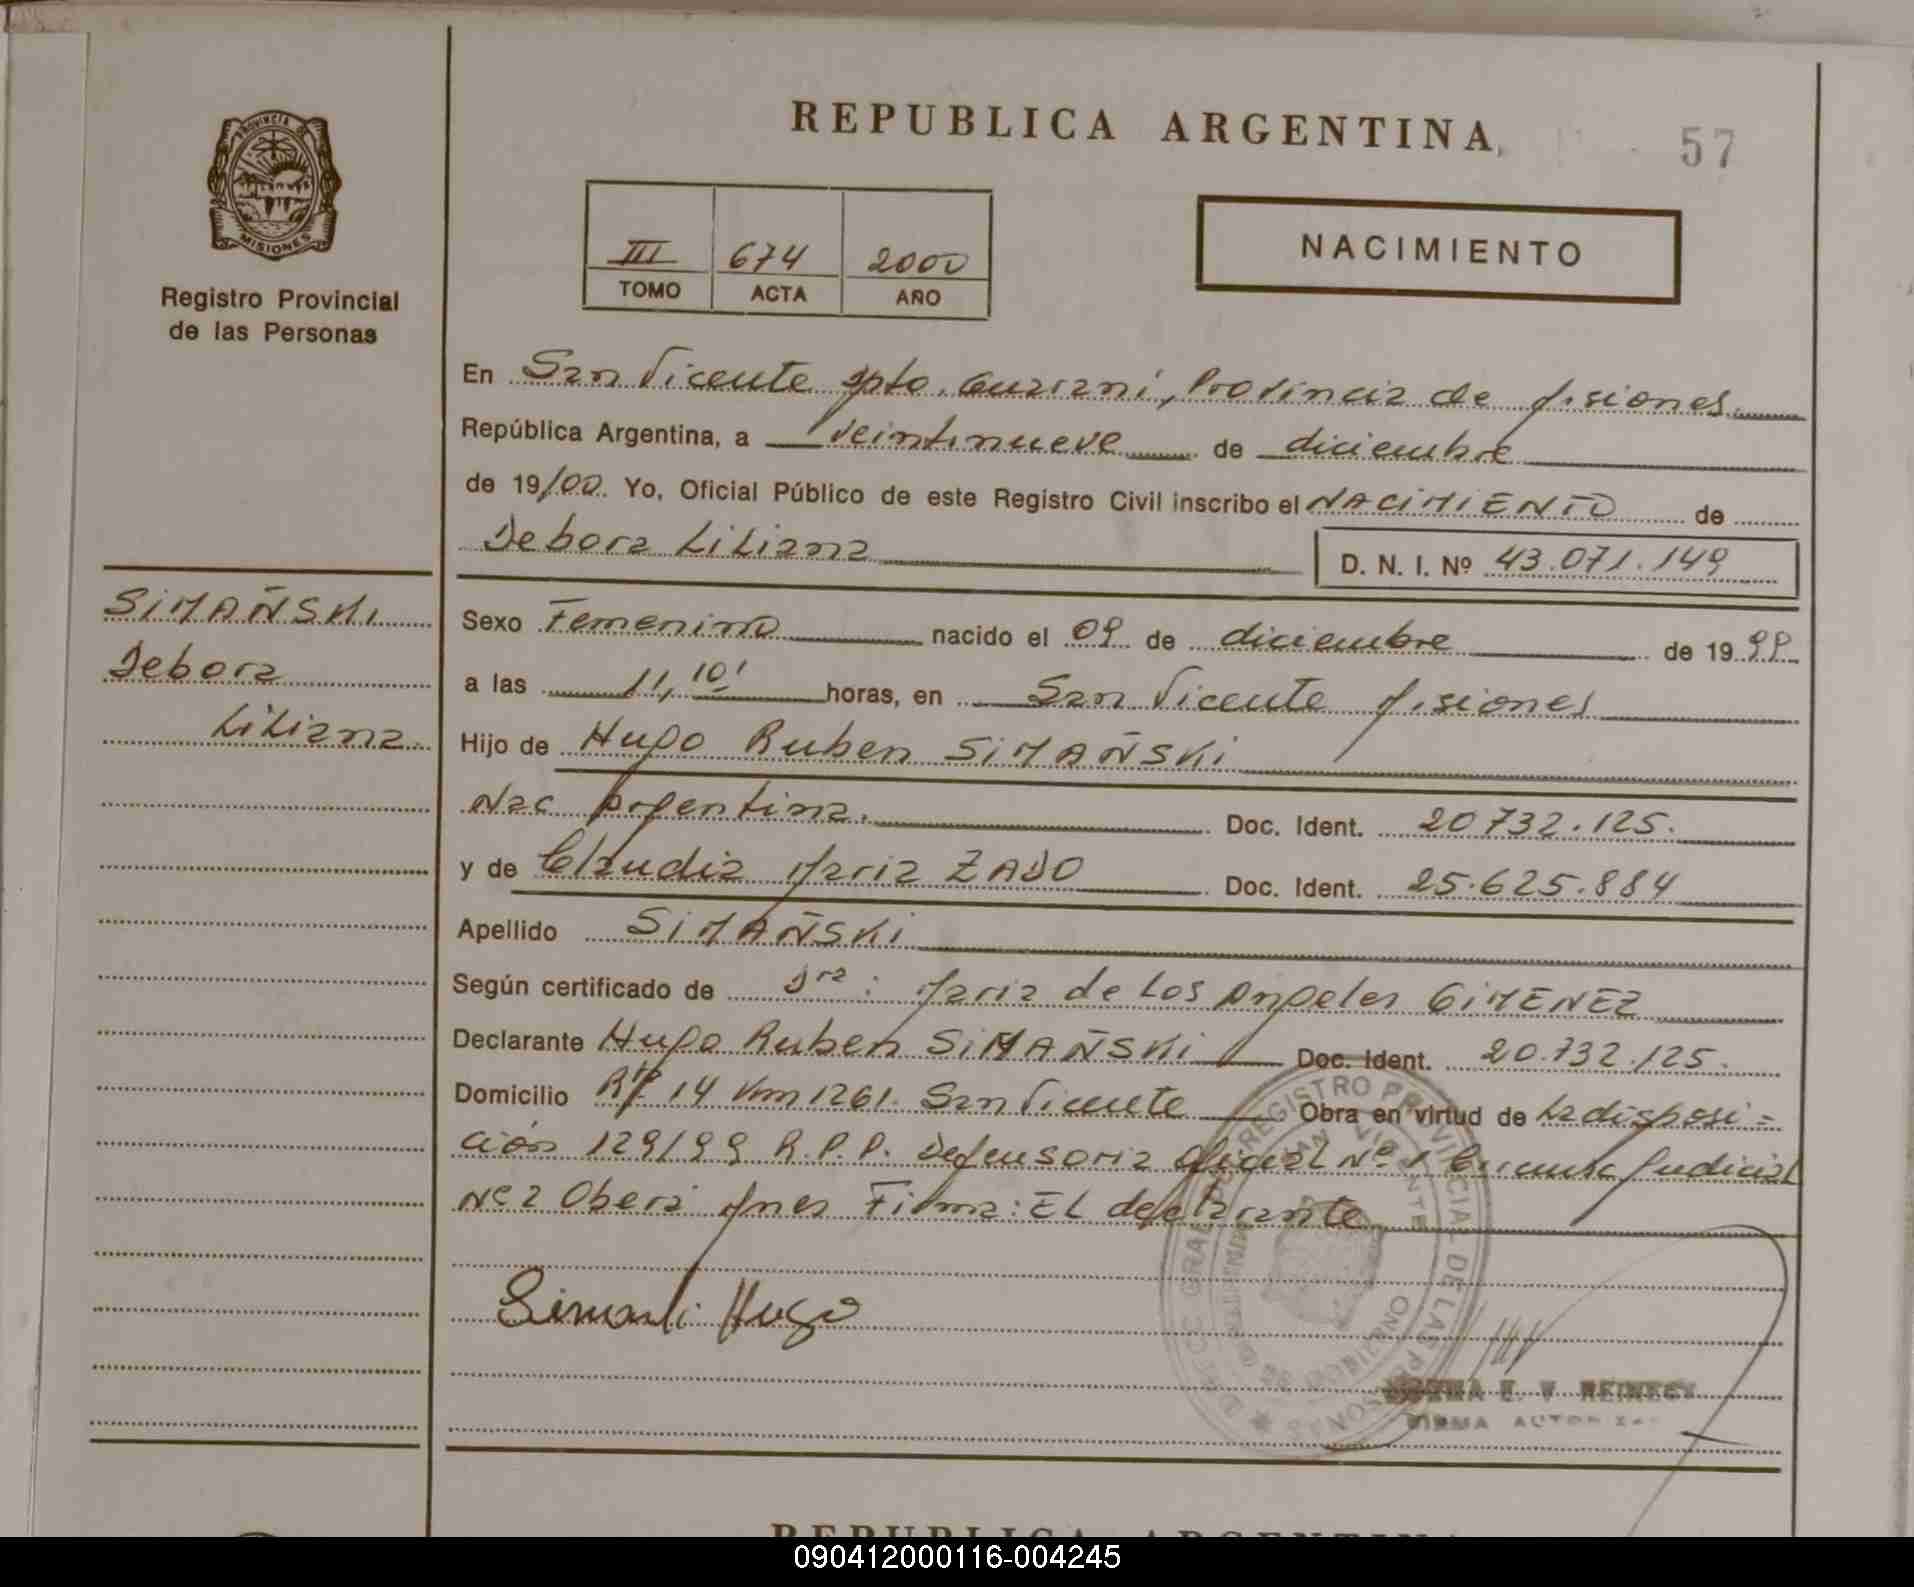 REPUBLICA ARGENTINA
57
PROVINCIA DE
MISIONES
Registro Provincial
de las Personas
III 674 2000
TOMO ACTA AÑO
NACIMIENTO
En San Vicente Dpto. Guarani, Provincia de Misiones
República Argentina, a veintinueve de diciembre
de 19/00. Yo, Oficial Público de este Registro Civil inscribo el NACIMIENTO de
Debora Liliana D. N. I. Nº 43.071.149
SIMAÑSKI
Debora
Liliana
Sexo Femenino nacido el 09 de diciembre de 1999
a las 11,10' horas, en San Vicente Misiones
Hijo de Hugo Ruben SiMAÑSKi
Nac Argentina. Doc. Ident. 20732.125.
y de Claudia Maria ZADO Doc. Ident. 25.625.884
Apellido SiMAÑSKi
Según certificado de Dra: Maria de Los Angeles GiMENEZ
Declarante Hugo Ruben SiMAÑSKi Doc. Ident. 20.732.125.
Domicilio 14 Km 1261 San Vicente Obra en virtud de La disposi=
ción 129/99 R.P.P. Defensoria Oficial Nº 1 Judicial
Nº 2 Obera Mnes Firma: EL declarante
Hugo
REGISTRO PROVINCIAL DE LAS PERSONAS
SAN VICENTE
MINISTERIO DE GOBIERNO
REPUBLICA ARGENTINA
090412000116-004245